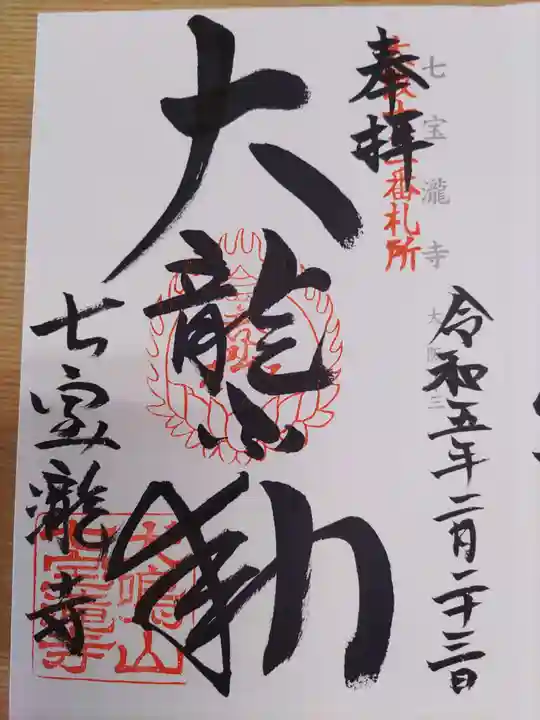 七宝瀧寺
大阪三
奉拝
番札所
令和五年二月二十三日
大龍不動
七宝瀧寺
犬鳴山
七宝瀧寺